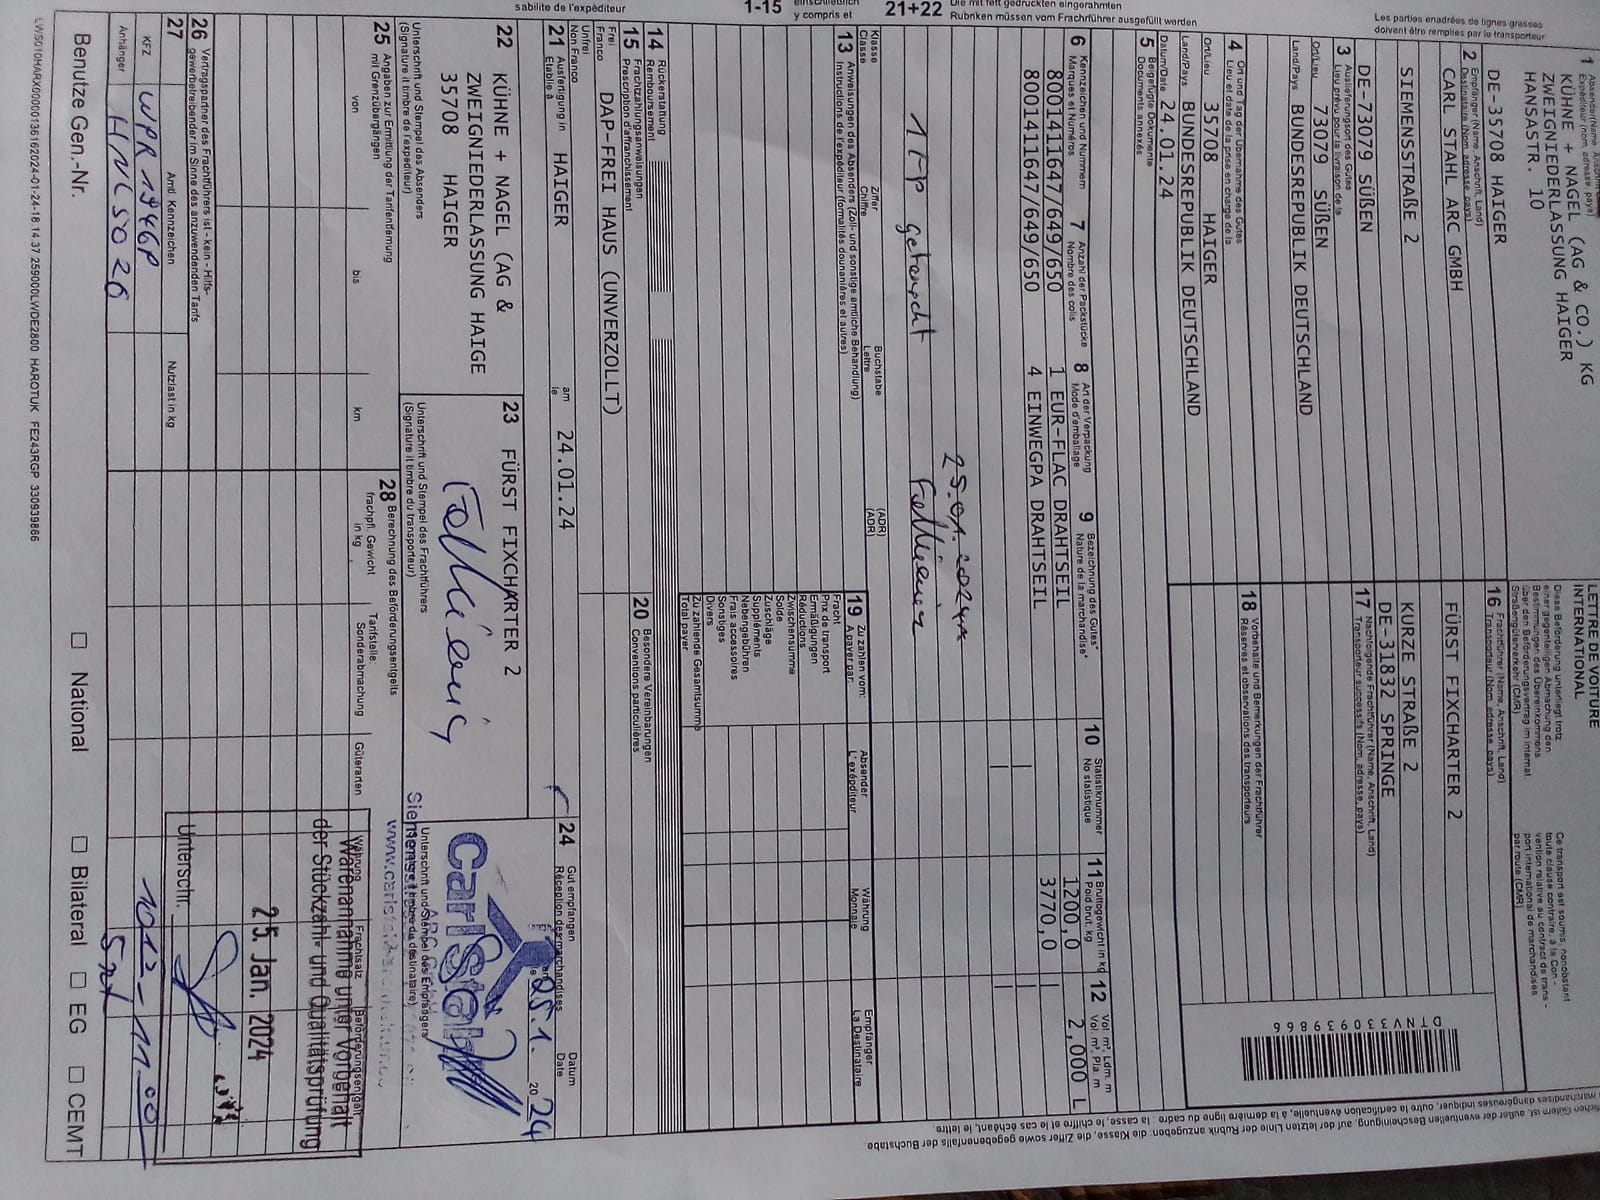 sabilite de l'expéditeur
1-15 einschließlich
y compris et
21+22 Die mit fett gedruckten eingerahmten
Rubriken müssen vom Frachrführer ausgefüllt werden
Les parties enadrées de lignes grasses
doivent être remplies par le transporteur
1 Absender(Name, Anschrift
Expéditeur (nom, adresse, pays)
KÜHNE + NAGEL (AG & CO.) KG
ZWEIGNIEDERLASSUNG HAIGER
HANSASTR. 10
DE-35708 HAIGER
LETTRE DE VOITURE
INTERNATIONAL
Diese Beförderung unterliegt trotz
einer gegenteiligen Abmachung den
Bestimmungen des Übereinkommens
über den Beförderungsvertrag im internat
Straßengüterverkehr (CMR)
Ce transport est soumis, nonobstant
toute clause contraire, à la Con-
vention relative au contract de trans-
port international de marchandises
par route (CMR)
2 Empfänger (Name, Anschrift, Land)
Destinataire (Nom, adresse, pays)
CARL STAHL ARC GMBH
SIEMENSSTRAßE 2
DE-73079 SÜßEN
16 Frachtführer (Name, Anschrift, Land)
Transporteur (Nom, adresse, pays)
FÜRST FIXCHARTER 2
KURZE STRAßE 2
DE-31832 SPRINGE
DTNV330939866
3 Auslieferungsort des Gutes
Lieu prévu pour la livraison de la
Ort/Lieu 73079 SÜßEN
Land/Pays BUNDESREPUBLIK DEUTSCHLAND
17 Nachfolgende Frachtführer (Name, Anschrift, Land)
Transporteur successifs (Nom, adresse, pays)
4 Ort und Tag der Übernahme des Gutes
Lieu et date de la prise en charge de la
Ort/Lieu 35708 HAIGER
Land/Pays BUNDESREPUBLIK DEUTSCHLAND
Datum/Date 24.01.24
18 Vorbehalte und Bemerkungen der Frachtführer
Réserves et observations des transporteurs
5 Beigefügte Dokumente
Documents annexés
6 Kennzeichen und Nummern
Marques et Numéros
7 Anzahl der Packstücke
Nombre des colis
8 Art der Verpackung
Mode d'emballage
9 Bezeichnung des Gutes*
Nature de la marchandise*
10 Statistiknummer
No statistique
11 Bruttogewicht in kg
Poid brut, kg
12 Vol m³, Ldm. m
Vol. m³, Pla. m
8001411647/649/650 1 EUR-FLAC DRAHTSEIL 1200,0 2,000 L
8001411647/649/650 4 EINWEGPA DRAHTSEIL 3770,0
25.01.2024
1 EP getauscht
Klasse
Classe
Ziffer
Chiffre
Buchstabe
Lettre
(ADR)
(ADR)
13 Anweisungen des Absenders (Zoll- und sonstige amtliche Behandlung)
Instructions de l'expéditeur (formalités dounanières et autres)
19 Zu zahlen vom:
A payer par:
Absender
L'expéditeur
Währung
Monnaie
Empfänger
La Destinataire
Fracht
Prix de transport
Ermäßigungen
Réductions
Zwischensumme
Solde
Zuschläge
Suppléments
Nebengebühren
Frais accessoires
Sonstiges
Divers
Zu zahlende Gesamtsumme
Total payer
14 Rückerstattung
Remboursement
15 Frachtzahlungsanweisungen
Prescription d'affranchissement
Frei
Franco DAP-FREI HAUS (UNVERZOLLT)
Unfrei
Non Franco
20 Besondere Vereinbarungen
Conventions particulières
21 Ausfertigung in
Etablie à HAIGER
am
le 24.01.24
24 Gut empfangen
Réception des marchandises
Datum
Date
25.1. 20 24
22 KÜHNE + NAGEL (AG &
ZWEIGNIEDERLASSUNG HAIGE
35708 HAIGER
Unterschrift und Stempel des Absenders
(Signature it timbre de l'expediteur)
23 FÜRST FIXCHARTER 2
Unterschrift und Stempel des Frachtführers
(Signature it timbre du transporteur)
CarlStahl
Unterschrift und Stempel des Empfängers
25 Angaben zur Ermittlung der Tarifentfernung
mit Grenzübergängen
von
bis
km
28 Berechnung des Beförderungsentgelts
frachpfl. Gewicht
in kg
Tarifstelle:
Sonderabmachung
Güterarten
Währung
Frachtsatz
Beförderungsentgelt
Warenannahme unter Vorbehalt
der Stückzahl- und Qualitätsprüfung
25. Jan. 2024
Unterschr.
26 Vertragspartner des Frachtführers ist - kein - Hilfs-
gewerbetreibender im Sinne des anzuwendenden Tarifs
27
Amtl Kennzeichen
Nutzlast in kg
KFZ WPR 1946P
Anhänger
10:00 - 11:00
Benutze Gen.-Nr.
☐ National
☐ Bilateral
☐ EG
☐ CEMT
LWS010HARX00000136162024-01-24-18.14.37 259000LWDE2800 HAROTUK FE243RGP 330939866